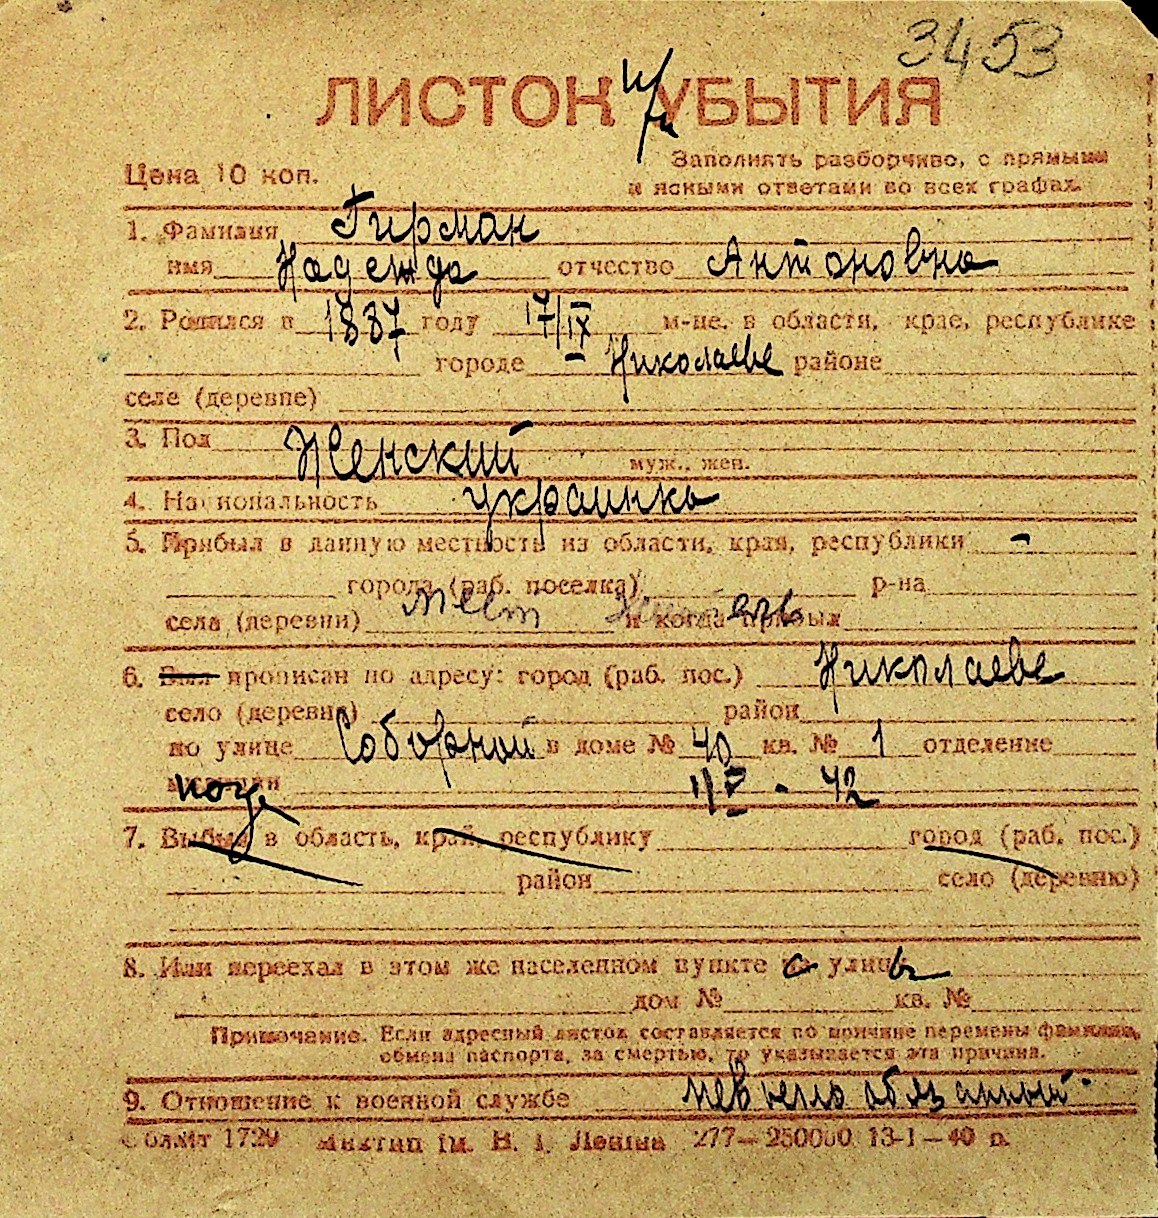 3453
ЛИСТОК УБЫТИЯ
Цена 10 коп.
Заполнять разборчиво, с прямыми
и ясными ответами во всех графах.
1. Фамилия Гирман
имя Надежда отчество Антоновна
2. Родился в 1887 году 17/IX м-це, в области, крае, республике
городе Николаеве районе
селе (деревне)
3. Пол Женский
муж., жен.
4. Национальность украинка
5. Прибыл в данную местность из области, края, республики -
города (раб. поселка) р-на
села (деревни) мест и когда прибыл
6. Был прописан по адресу: город (раб. пос.) Николаеве
село (деревня) район
по улице Соборной в доме № 40 кв. № 1 отделение
милиции 1/V - 42
7. Выбыл в область, край, республику город (раб. пос.)
район село (деревню)
8. Или переехал в этом же населенном пункте на улицу
дом № кв. №
Примечание. Если адресный листок составляется по причине перемены фамилии,
обмена паспорта, за смертью, то указывается эта причина.
9. Отношение к военной службе невоенно обязанный.
Обллит 1729 Миктип ім. В. І. Леніна 277—250000 13-1—40 р.